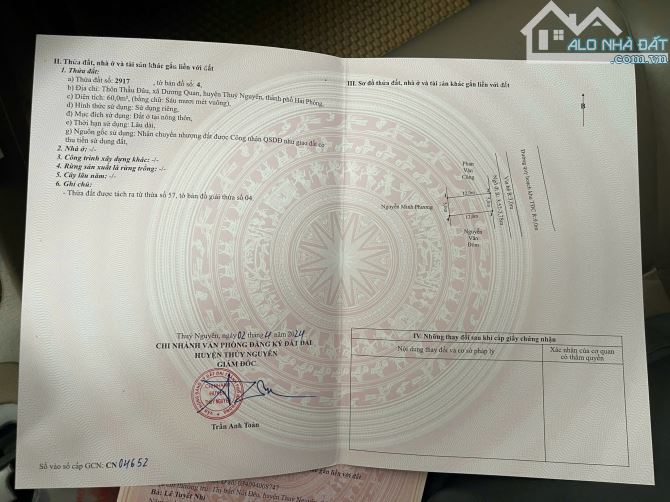 ALO NHÀ ĐẤT
II. Thửa đất, nhà ở và tài sản khác gắn liền với đất
1. Thửa đất:
a) Thửa đất số: 2917 , tờ bản đồ số: 4,
b) Địa chỉ: Thôn Thầu Đâu, xã Dương Quan, huyện Thuỷ Nguyên, thành phố Hải Phòng,
c) Diện tích: 60,0m², (bằng chữ: Sáu mươi mét vuông),
d) Hình thức sử dụng: Sử dụng riêng,
đ) Mục đích sử dụng: Đất ở tại nông thôn,
e) Thời hạn sử dụng: Lâu dài,
g) Nguồn gốc sử dụng: Nhận chuyển nhượng đất được Công nhận QSDĐ như giao đất có
thu tiền sử dụng đất.
2. Nhà ở: -/-
3. Công trình xây dựng khác: -/-
4. Rừng sản xuất là rừng trồng: -/-
5. Cây lâu năm: -/-
6. Ghi chú:
- Thửa đất được tách ra từ thửa số 57, tờ bản đồ giải thửa số 04.
Thuỷ Nguyên, ngày 02 tháng 4 năm 2024
CHI NHÁNH VĂN PHÒNG ĐĂNG KÝ ĐẤT ĐAI
HUYỆN THỦY NGUYÊN
GIÁM ĐỐC
Trần Anh Toàn
Số vào sổ cấp GCN: CN 04652
III. Sơ đồ thửa đất, nhà ở và tài sản khác gắn liền với đất
B
Phan
Văn
Công
Nguyễn Minh Phương
12.0m
12.0m
Nguyễn
Văn
Đôm
IV. Những thay đổi sau khi cấp giấy chứng nhận
Nội dung thay đổi và cơ sở pháp lý
Xác nhận của cơ quan
có thẩm quyền
Bà: Lê Tuyết Nhi